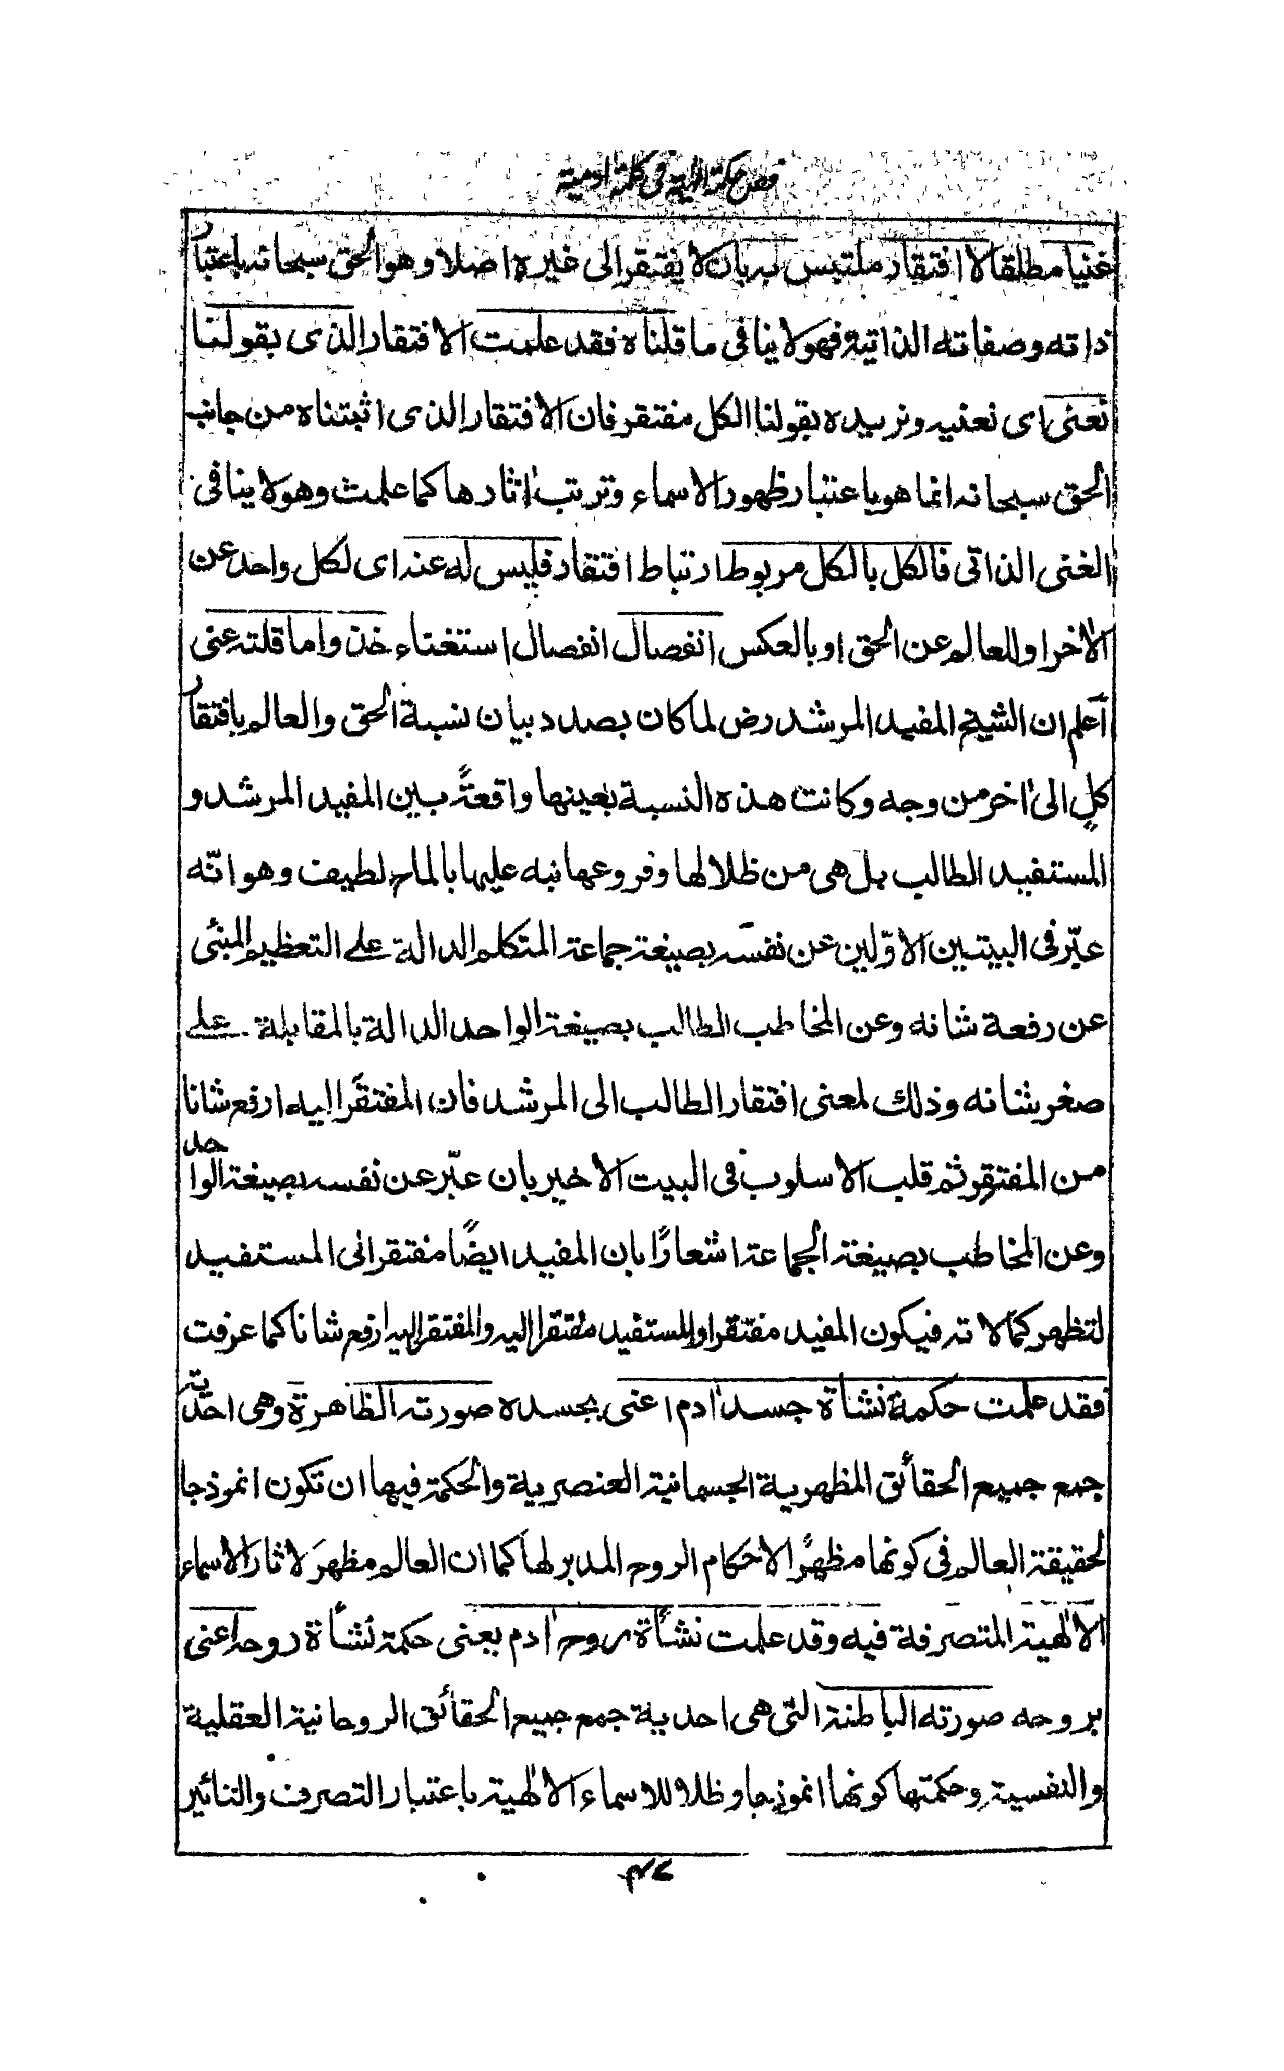 فص حكمة الهية فى كلمة ادمية
غنيا مطلقا لا افتقار ملتبس به بان لا يفتقر الى غيره اصلا وهو الحق سبحانه باعتبار
ذاته وصفاته الذاتية فهو لا ينافى ما قلناه فقد علمت الافتقار الذى بقولنا
نعنى اى نعنيه ونريده بقولنا الكل مفتقر فان الافتقار الذى اثبتناه من جانب
الحق سبحانه انما هو باعتبار ظهور الاسماء وترتب اثارها كما علمت وهو لا ينافى
الغنى الذاتى فالكل بالكل مربوط ارتباط افتقار فليس له عنه اى لكل واحد عن
الاخر او للعالم عن الحق او بالعكس انفصال انفصال استغناء خذ وا ما قلته عنى
اعلم ان الشيخ المفيد المرشد رض لما كان بصدد بيان نسبة الحق والعالم بافتقار
كلٍ الى اخر من وجه وكانت هذه النسبة بعينها واقعةً بين المفيد المرشد و
المستفيد الطالب بل هى من ظلالها وفروعها نبه عليها بالماح لطيف وهو انّه
عبّر فى البيتين الاوّلين عن نفسه بصيغة جماعة المتكلم الدالة على التعظيم المبنئى
عن رفعة شانه وعن المخاطب الطالب بصيغة الواحد الدالة بالمقابلة على
صغر شانه وذلك لمعنى افتقار الطالب الى المرشد فان المفتقَر اليه ارفع شانا
من المفتقِر ثم قلب الاسلوب فى البيت الاخير بان عبّر عن نفسه بصيغة الواحد
وعن المخاطب بصيغة الجماعة اشعارًا بان المفيد ايضًا مفتقر الى المستفيد
لتظهر كمالاته فيكون المفيد مفتقرا والمستفيد مفتقرا اليه والمفتقر اليه ارفع شانا كما عرفت
فقد علمت حكمة نشاة جسد ادم اعنى بجسده صورته الظاهرة وهى احدية
جمع جميع الحقائق المظهرية الجسمانية العنصرية والحكمة فيها ان تكون انموذجا
لحقيقة العالم فى كونها مظهرًا لاحكام الروح المدبر لها كما ان العالم مظهر لاثار الاسماء
الالهية المتصرفة فيه وقد علمت نشأة روح ادم بعنى حكمة نشأة روحه اعنى
بروحه صورته الباطنة التى هى احدية جمع جميع الحقائق الروحانية العقلية
والنفسية وحكمتها كونها انموذجا وظلا للاسماء الالهية باعتبار التصرف والتاثير